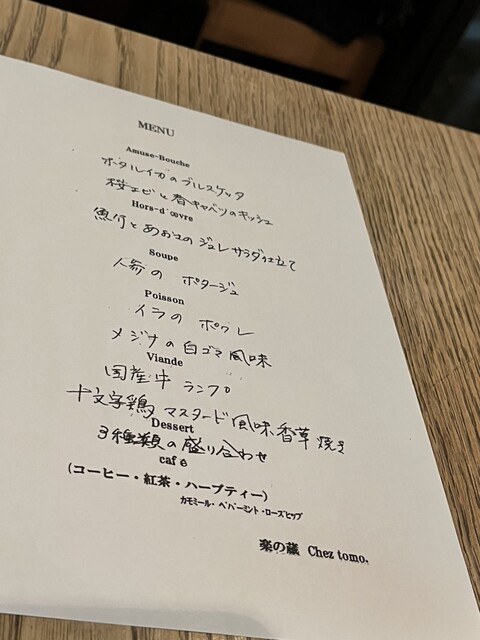 MENU
Amuse-Bouche
ホタルイカのブルスケッタ
桜エビと春キャベツのキッシュ
Hors-d'œuvre
魚介とあおさのジュレサラダ仕立て
Soupe
人参の ポタージュ
Poisson
イラの ポワレ
メジナの白ゴマ風味
Viande
国産牛 ランプ
十文字鶏 マスタード風味香草焼き
Dessert
3種類の盛り合わせ
café
(コーヒー・紅茶・ハーブティー)
カモミール・ペパーミント・ローズヒップ
楽の蔵 Chez tomo.